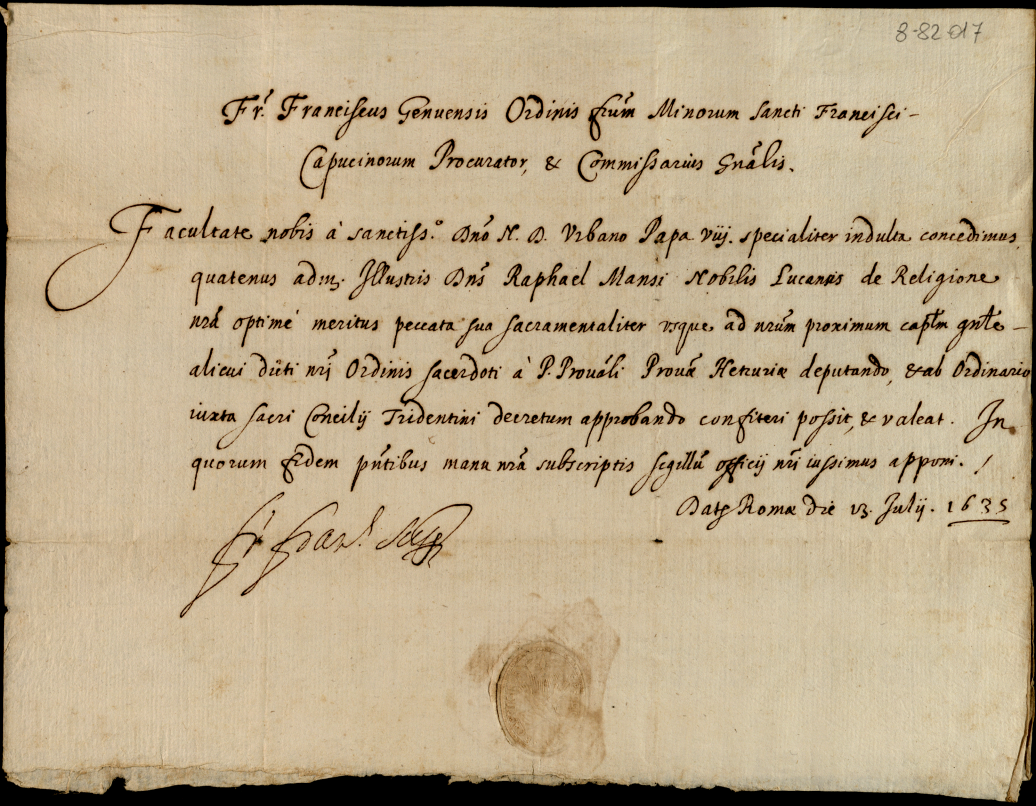 8-82.017
Fr. Franciscus Genuensis Ordinis frũm Minorum Sancti Francisci-
Capucinorum Procurator, & Commissarius Gnãlis.
Facultate nobis à sanctiss.º Dnõ N. D. Vrbano Papa viij. specialiter indulta concedimus,
quatenus adm. Illustris Dns̃ Raphael Mansi Nobilis Lucanus de Religione
nrã optimé meritus peccata sua sacramentaliter vsque ad nrũm proximum captm̃ gnłe-
alicui dicti nrĩ Ordinis sacerdoti à P. Prouãli Prouæ̃ Hetruriæ deputando, & ab Ordinario
iuxta sacri Concilij Tridentini decretum approbando confiteri possit, & valeat. In
quorum fidem pñtibus manu nrã subscriptis sigillũ officij nrĩ iussimus apponi. /
Datẹ Romæ die 13. Julij. 1635
Fr Fran.